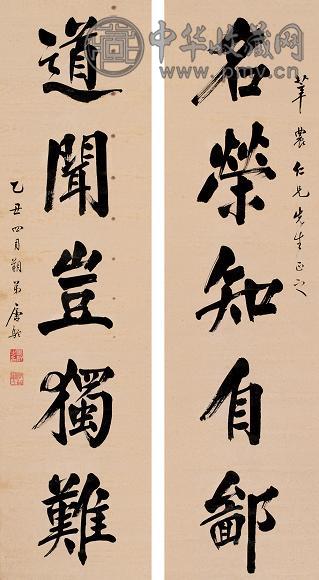 中华收藏网
莘農仁兄先生正之
名榮知自鄙
道聞豈獨難
乙丑四月弟唐駝